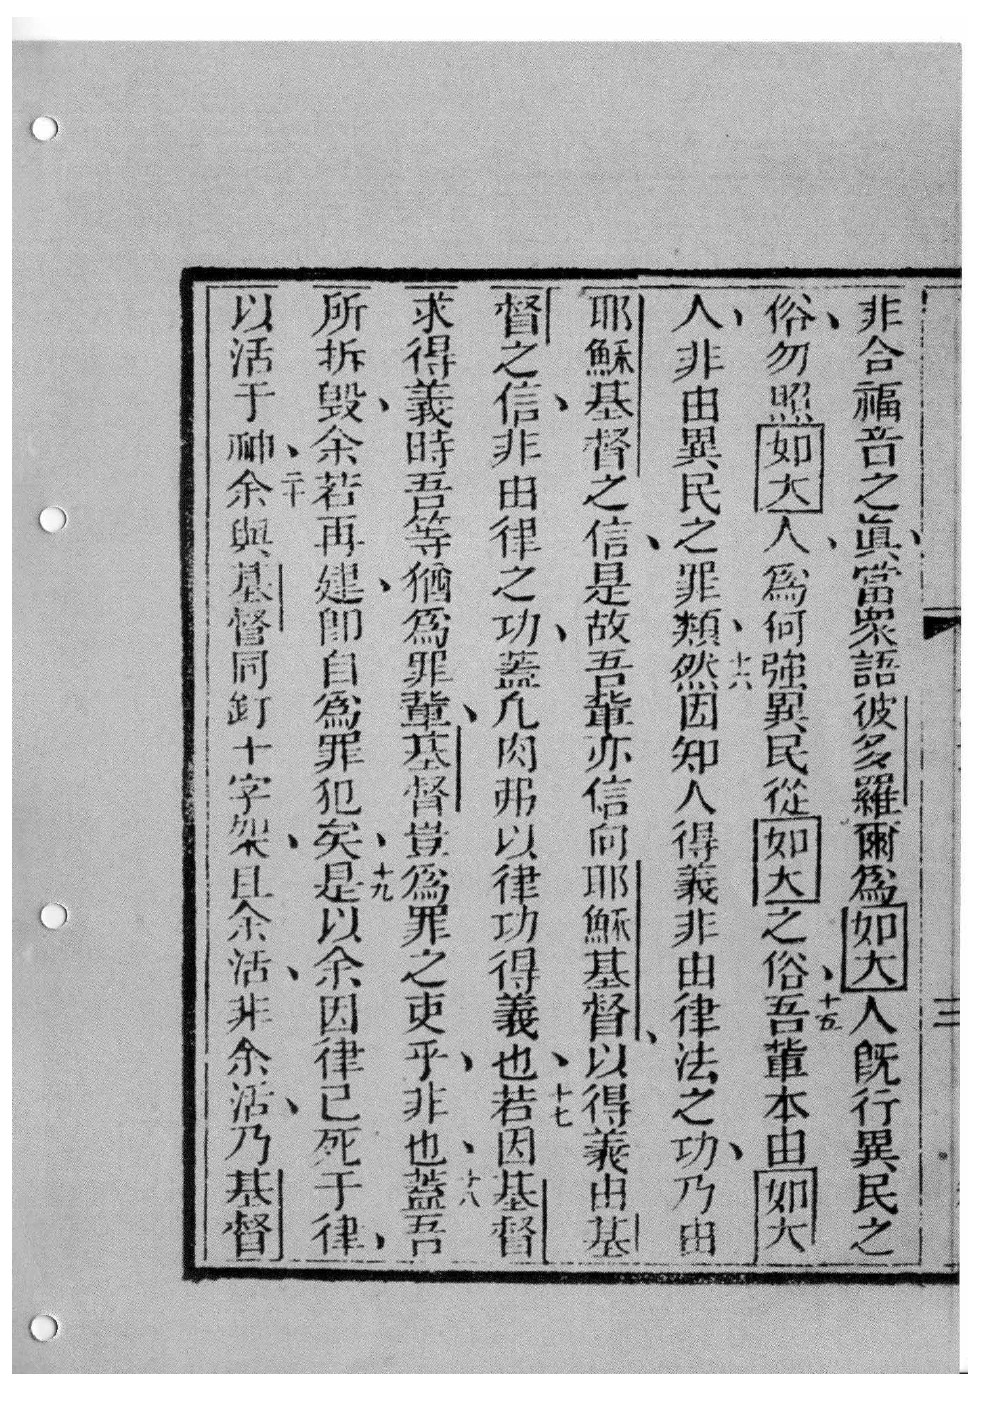 非合福音之眞、當眾語彼多羅爾爲如大人旣行異民之
俗、勿照如大人、爲何強異民從如大之俗、十五吾輩本由如大
人、非由異民之罪類、十六然因知人得義非由律法之功、乃由
耶穌基督之信、是故吾輩亦信向耶穌基督、以得義由基
督之信、非由律之功、蓋凢肉弗以律功得義也、十七若因基督
求得義時吾等猶爲罪輩、基督豈爲罪之吏乎、非也、十八蓋吾
所拆毀、余若再建、卽自爲罪犯矣、十九是以余因律已死于律、
以活于神、二十余與基督同釘十字架、且余活、非余活、乃基督
三